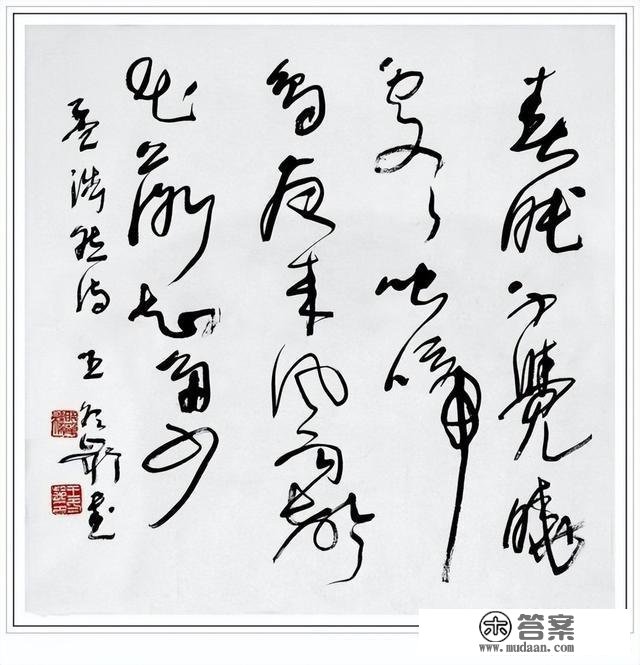 春眠不覺曉
處々聞啼
鳥夜来風雨聲
花落知多少
孟浩然诗 王
答案
www.mudaan.com